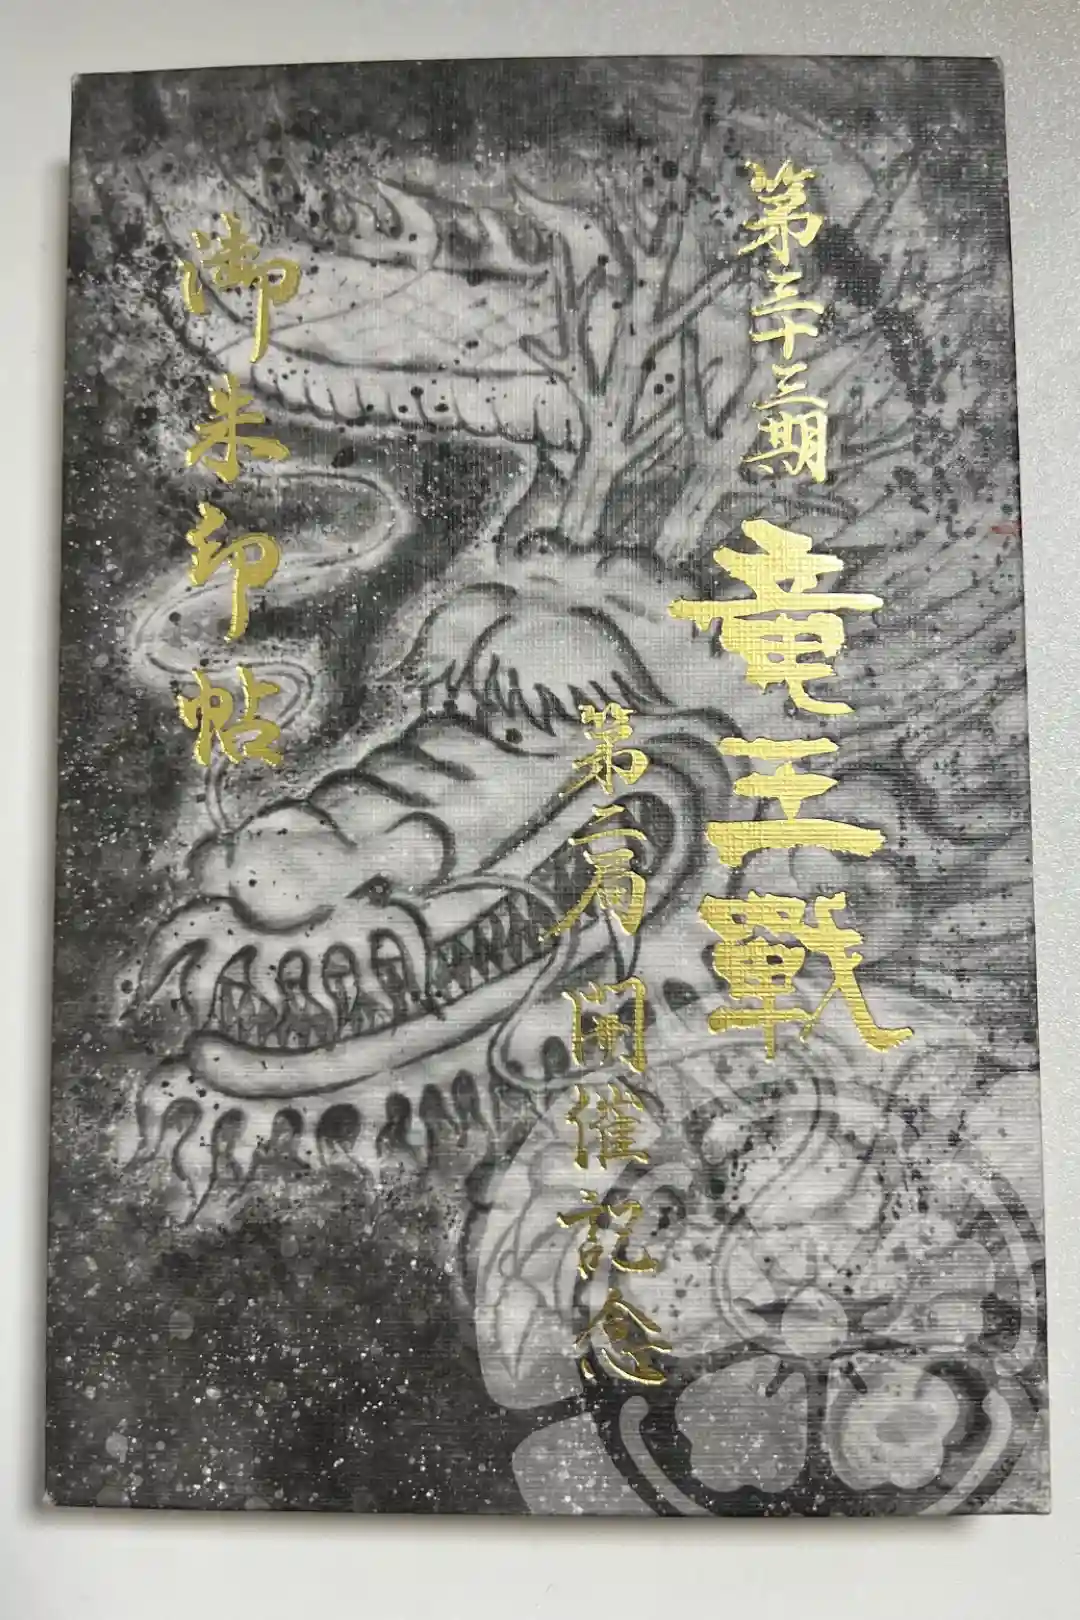 第三十三期
竜王戦
第二局
開催記念
御朱印帖